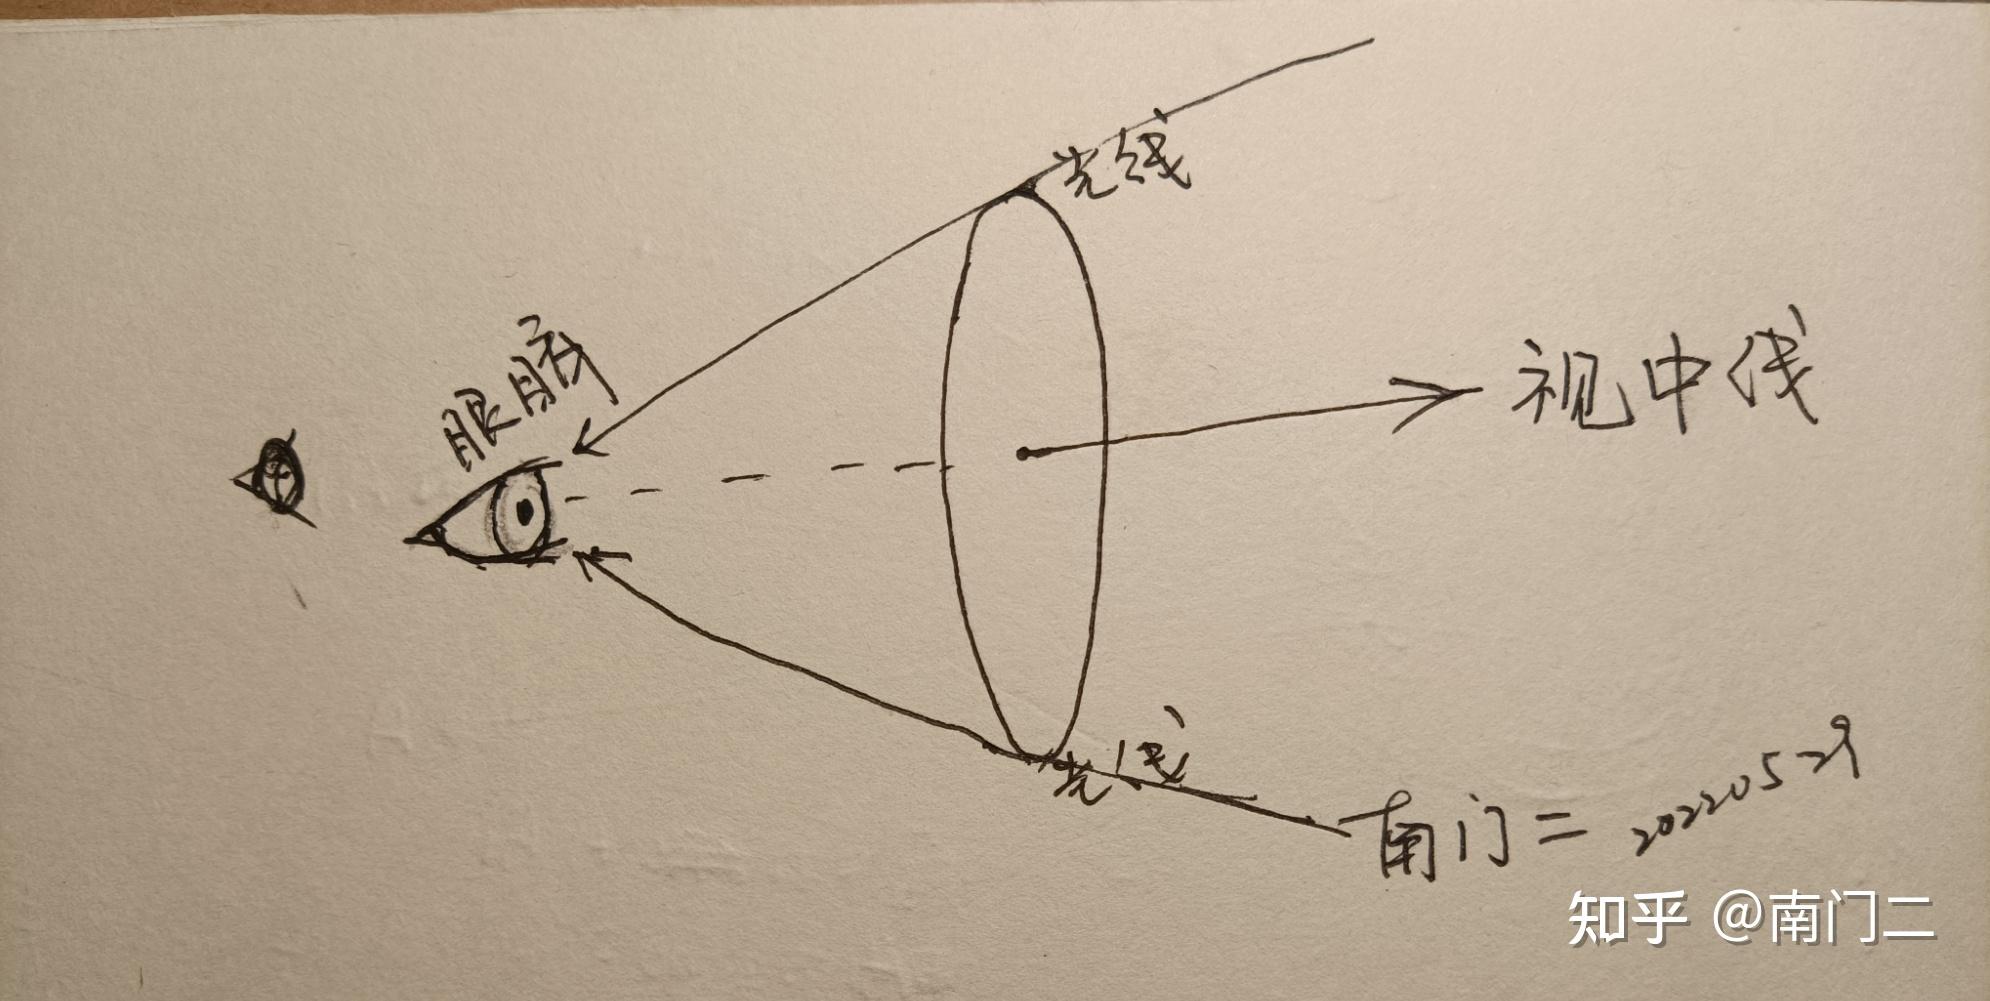 光线
眼睛
视中线
光线
南门二 20220529
知乎 @南门二